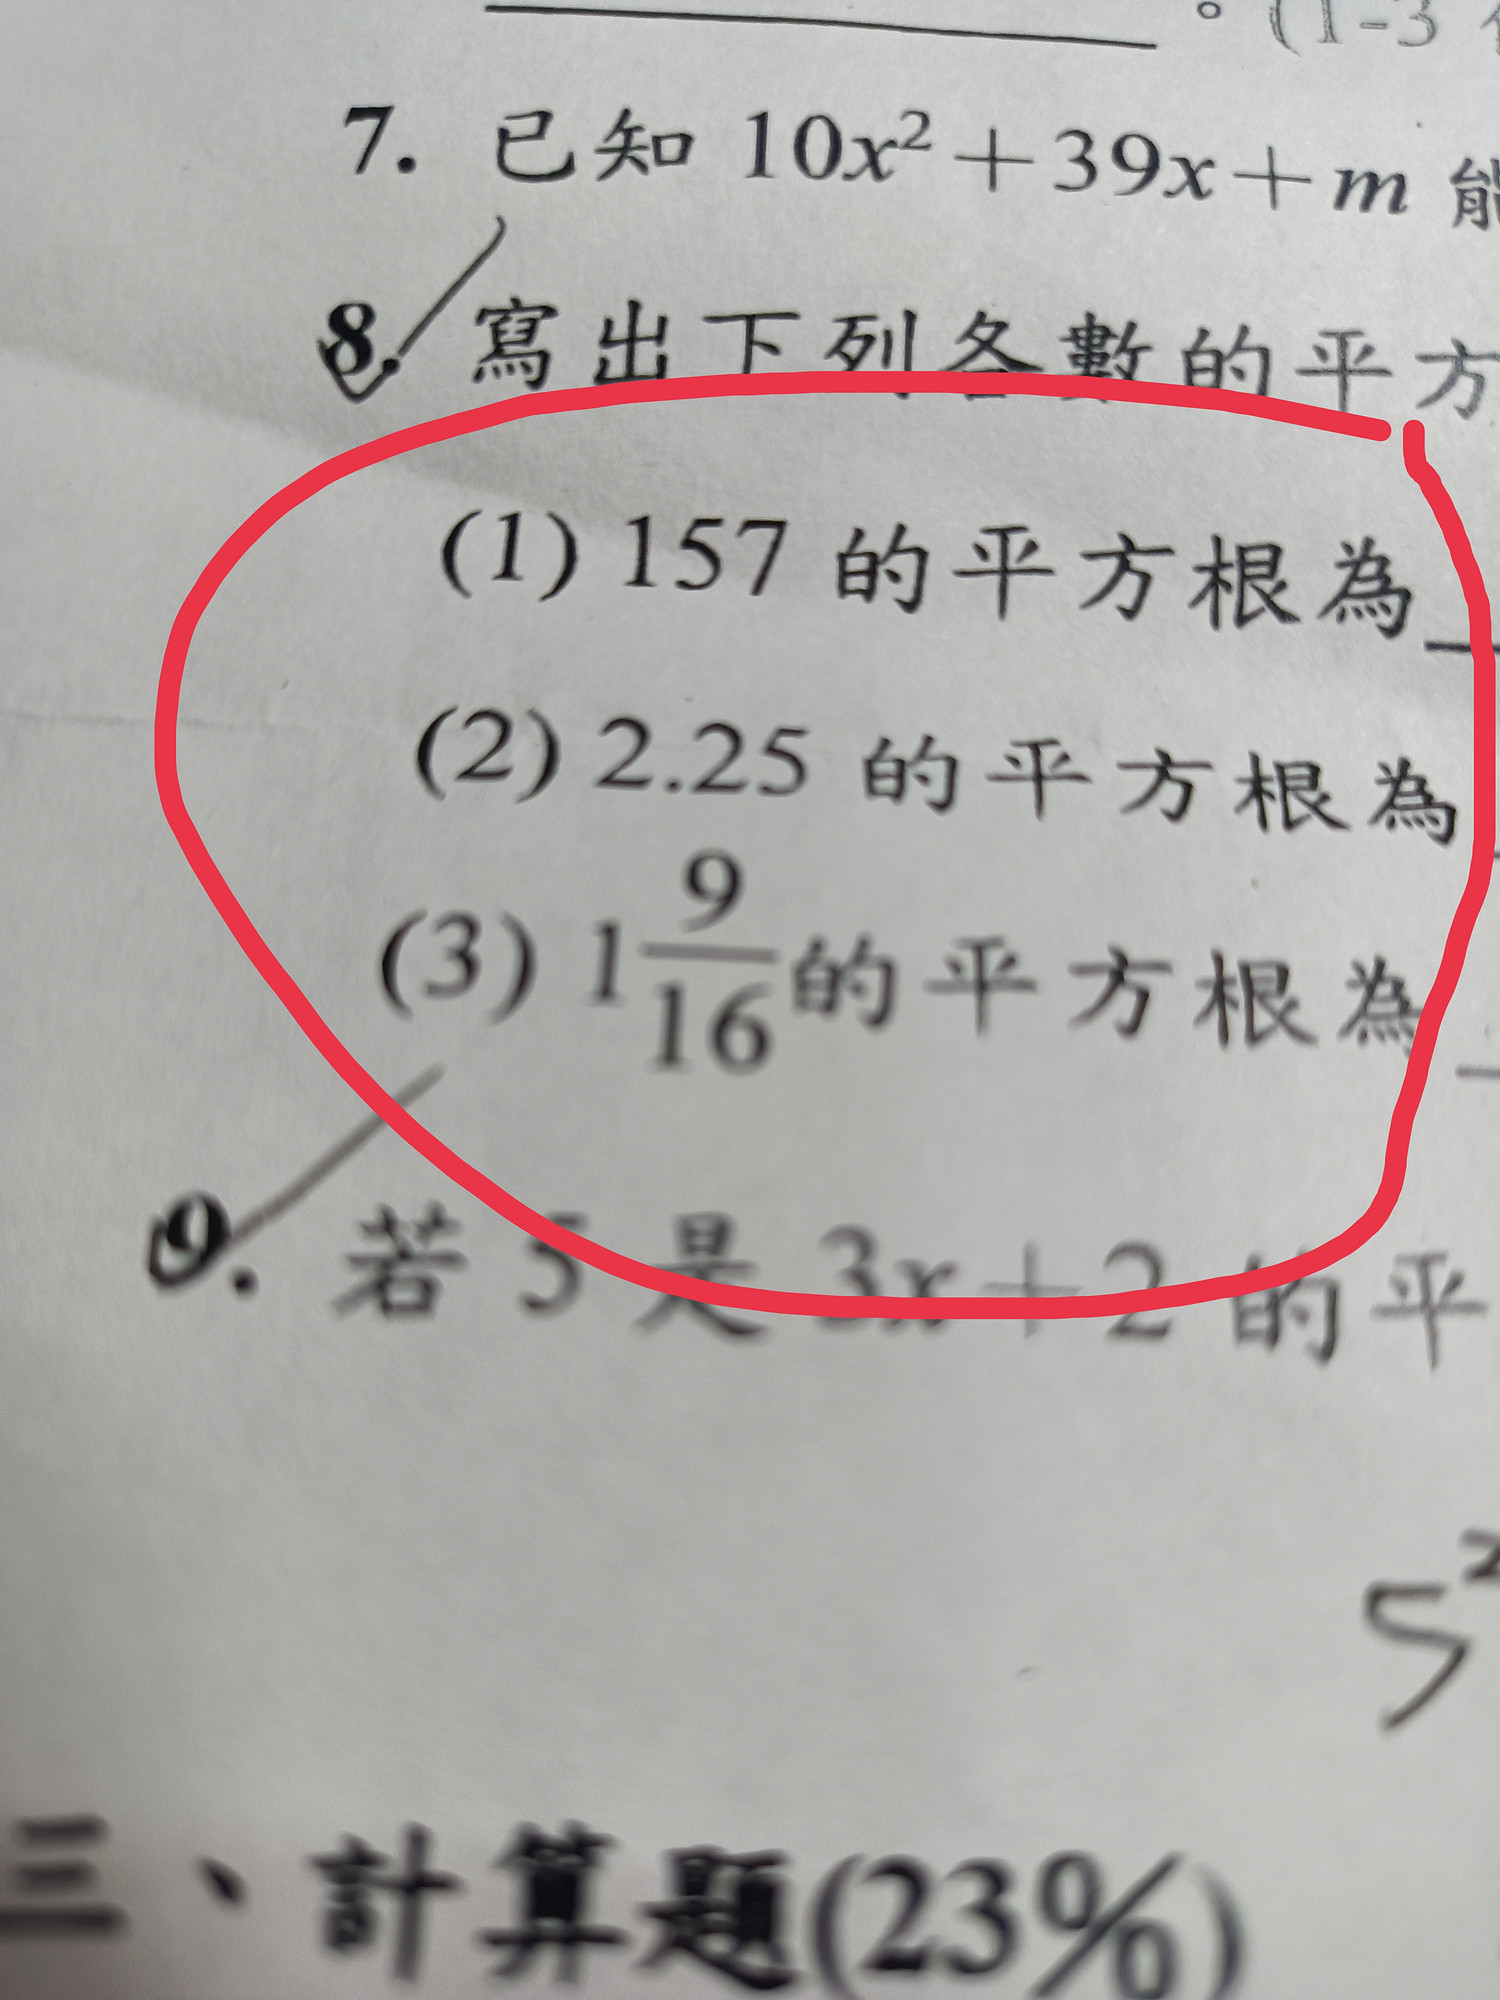 。(1-3
7. 已知 10x² + 39x + m 能
8. 寫出下列各數的平方
(1) 157 的平方根為
(2) 2.25 的平方根為
(3) 1 9/16 的平方根為
9. 若 5 是 3x + 2 的平
5²
三、計算題(23%)